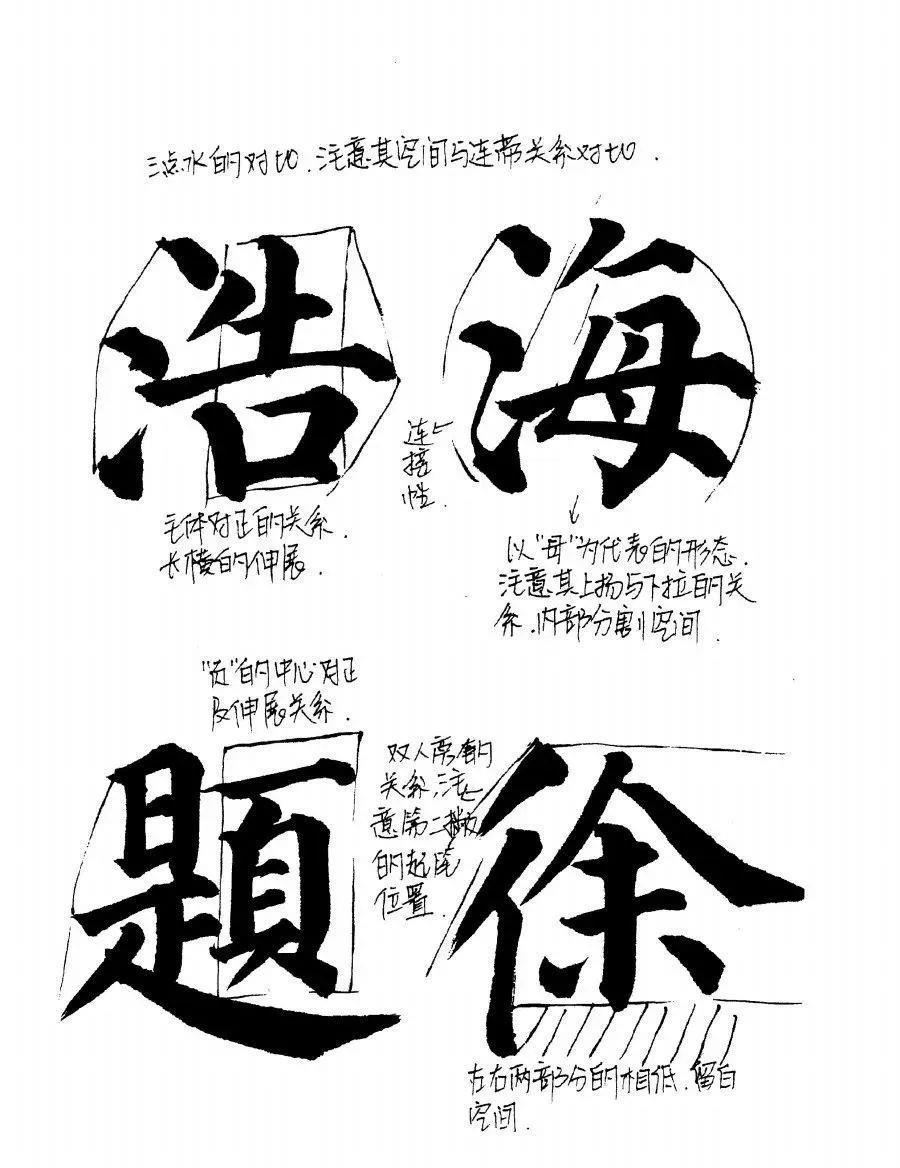 三点水的对切.注意其空间与连带关系对切.
浩 海
连
接
性.
主体对正的关系.
长横的伸展.
以"母"为代表的形态.
注意其上扬与下拉的关
系.内部分割空间.
"页"的中心对正
及伸展关系.
題 徐
双人旁的
关系,注
意第二撇
的起笔
位置.
左右两部分的相低.留白
空间.